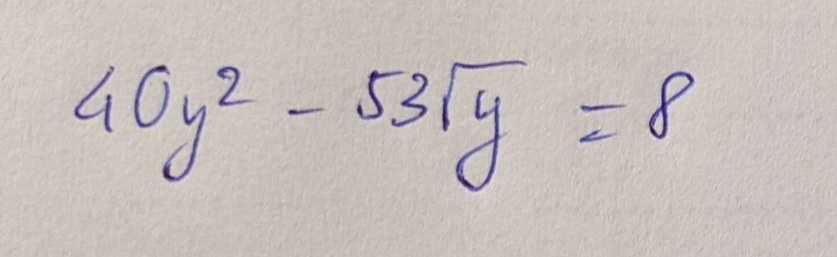 40y² - 53√y = 8